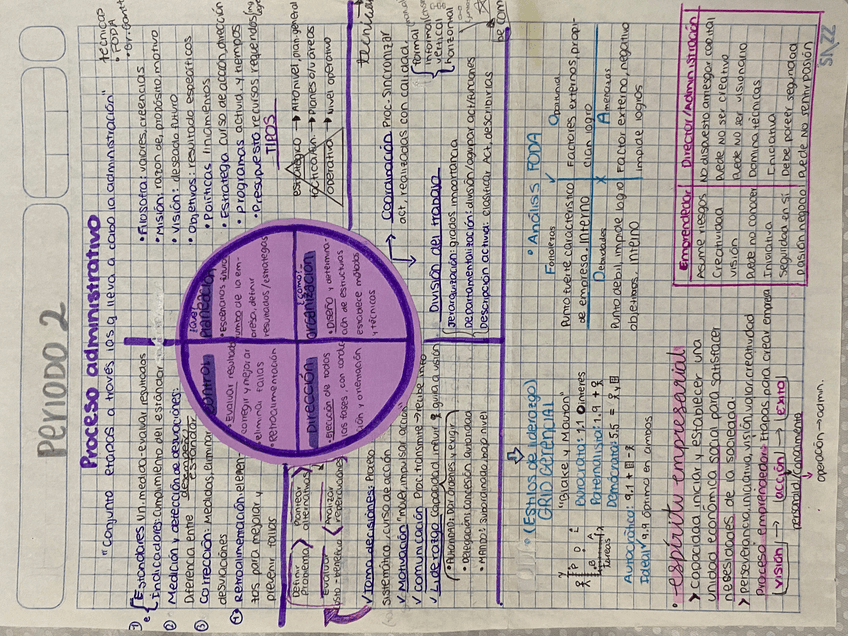 PERIODO 2
Proceso administrativo
"Conjunto etapas a través los q lleva a cabo la administración"
técnicas
• FODA
• Filosofía: valores, creencias
• Misión: razón de, propósito, motivo
• Visión: deseado, futuro
• Objetivos: resultado específicos
• Políticas: lineamientos
• Estrategia: curso de acción, dirección
• Programas: activd. y tiempos
• Presupuesto: recursos requeridos
TIPOS
estratégico → Alto nivel, plan general
táctica/fun → Planes c/u áreas
operativa → nivel operativo
① Estándares: Un. medida - evaluar resultados
Indicadores: cumplimiento del estándar
② Medición y detección de desviaciones:
Diferencia entre desempeño/estándar
③ Corrección: Medidas, eliminar
desviaciones
④ Retroalimentación: elemen-
tos para mejorar y
prevenir fallas
planeación
• Escenarios futuros
rumbo de la em-
presa, definir
resultados/estrategias
control
• Evaluar resultados
corregir y mejorar
eliminar fallas
• Retroalimentación
organización
• Diseño y determina-
ción de estructuras
establece métodos
y técnicas
Dirección
• Ejecución de todas
las fases, con conduc
ción y orientación
Definir
Problema
Plantear
alternativas
Evaluar
costo-beneficio
Analizar
repercusiones
✓ Toma decisiones: Proceso
sistemático, curso de acción
✓ Motivación "mover, impulsar acción"
✓ Comunicación Proc. transmite-recibe info
✓ Liderazgo capacidad influir, guía a visión
• Autoridad: Dar órdenes y exigir
• Delegación: concesión autoridad
• Mando: subordinado bajo nivel
técnicas
formal
informal
vertical
horizontal
Coordinación Proc. Sincronizar
act, realizadas con calidad.
División del trabajo
Jerarquización: grados importancia
Departamentalización: división/agrupar act/funciones
Descripción activa.: clasificar Act, describirlas
(Estilos de liderazgo)
GRID GERENCIAL
"Blake y Mouton"
Burocrata: 1,1 ∅ interes
Paternalista: 1,9
Demócrata: 5,5
Autocrático: 9,1
Ideal: 9,9 óptimo en ambos
tareas
• Análisis FODA
Fortalezas
Punto fuerte, característica
de empresa. Interno
Oportunidad
Factores externos, propi-
cian logro
Debilidades
Punto debil, impide logro
objetivos. Interno
Amenazas
Factor externo, negativo
impide logros
• espíritu empresarial
➤ Capacidad iniciar y establecer una
unidad económica social para satisfacer
necesidades de la sociedad.
➤ perseverancia, iniciativa, visión, valor, creatividad
Proceso emprendedor: Etapas para crear empresa
visión → acción → Éxito
operación → admin.
Emprendedor
Director/Administración
Asume riesgos
No dispuesto arriesgar capital
Creatividad
Puede NO ser creativo
visión
Puede NO ser visionario
Puede no conocer
Domina técnicas
Iniciativa
Iniciativa
Seguridad en sí
Debe poseer seguridad
Pasión negocio
Puede No sentir pasión